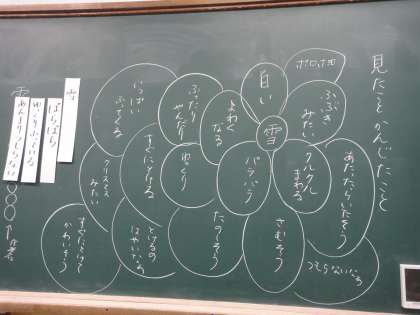 見たことかんじたこと
ポロポロ
ふぶき
みたい
あたったらいたそう
つもらないなあ
白い
雪
クルクル
まわる
さむそう
よわく
なる
パラパラ
たのしそう
ふったり
やんだり
ゆっくり
とけるの
はやいなあ
いっぱい
ふってる
すぐにとける
クリスマス
みたい
すぐとけて
かわいそう
雪
ぱらぱら
ゆっくりふっている
あんまりつもらない
雪